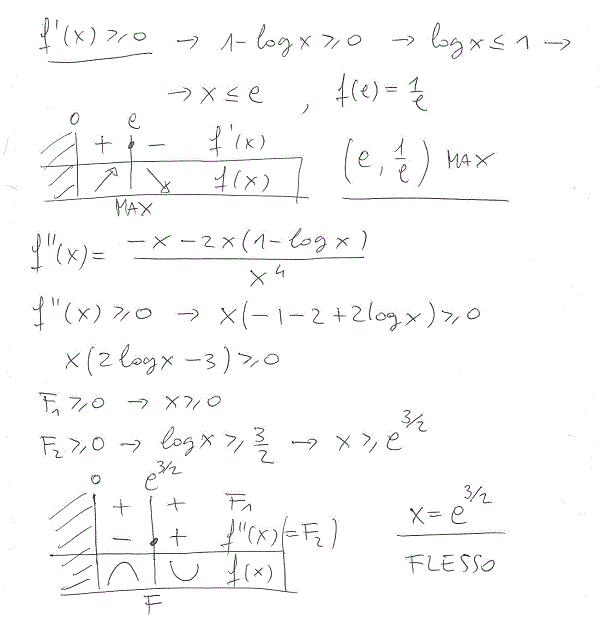 f'(x) ≥ 0 → 1-log x ≥ 0 → log x ≤ 1 →
→ x ≤ e , f(e) = 1/e
0 e
+ - f'(x)
↗ ↘ f(x)
MAX
(e, 1/e) MAX
f''(x) = (-x - 2x(1-log x)) / x⁴
f''(x) ≥ 0 → x(-1-2+2log x) ≥ 0
x(2log x - 3) ≥ 0
F₁ ≥ 0 → x ≥ 0
F₂ ≥ 0 → log x ≥ 3/2 → x ≥ e^3/2
0 e^3/2
+ + F₁
- + f''(x)(=F₂)
∩ ∪ f(x)
F
x = e^3/2
FLESSO